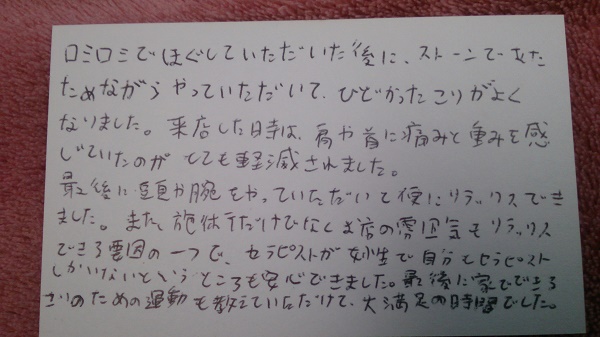 ロミロミでほぐしていただいた後に、ストーンであたた
ためながらやっていただいて、ひどかったこりがよく
なりました。来店した時は、肩や首に痛みと重みを感
じていたのがとても軽減されました。
最後に頭や腕をやっていただいて更にリラックスでき
ました。また、施術だけでなくお店の雰囲気もリラックス
できる要因の一つで、セラピストが女性で自分とセラピスト
しかいないというところも安心できました。最後に家でできる
ための運動も教えていただけて、大満足の時間でした。